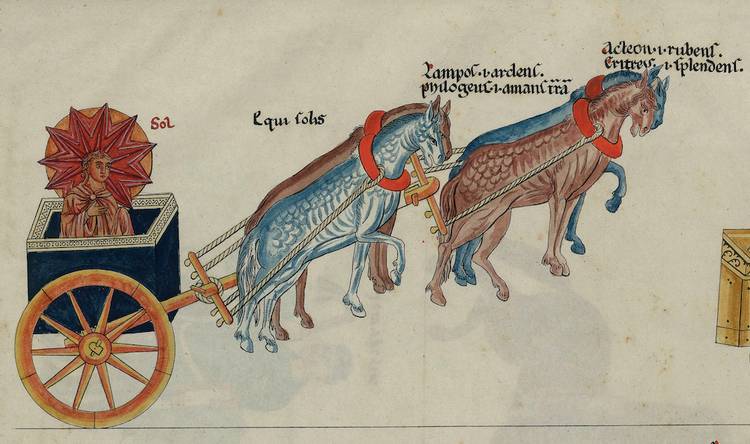 Acteon·i·rubens.
Eritreus·i·splendens.
Lampos·i·ardens.
phylogeus·i·amans t̄r̄ā
Equi solis
Sol